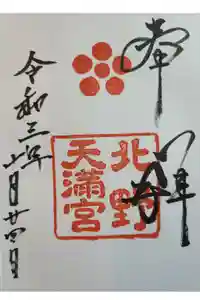 奉拝
北野
天満宮
令和三年十一月廿四日